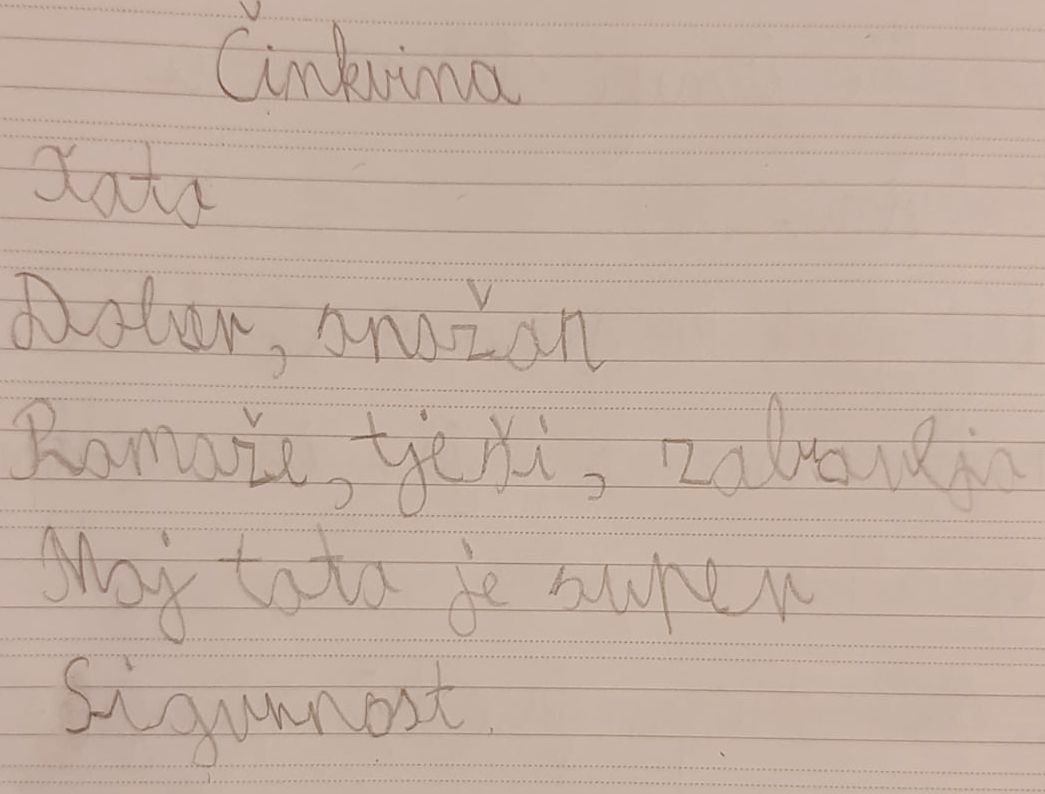 Činkvina
Tata
Dobar, snažan
Pomaže, tješi, zabavlja
Moj tata je super
Sigurnost.